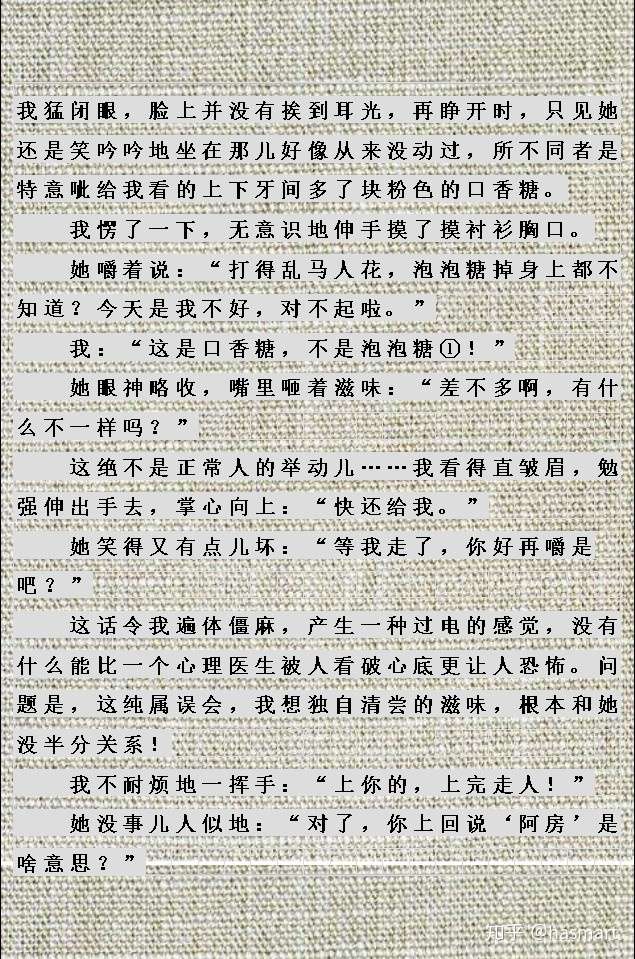 我猛闭眼，脸上并没有挨到耳光，再睁开时，只见她
还是笑吟吟地坐在那儿好像从来没动过，所不同者是
特意呲给我看的上下牙间多了块粉色的口香糖。
我愣了一下，无意识地伸手摸了摸衬衫胸口。
她嚼着说：“打得乱马人花，泡泡糖掉身上都不
知道？今天是我不好，对不起啦。”
我：“这是口香糖，不是泡泡糖①！”
她眼神略收，嘴里咂着滋味：“差不多啊，有什
么不一样吗？”
这绝不是正常人的举动儿……我看得直皱眉，勉
强伸出手去，掌心向上：“快还给我。”
她笑得又有点儿坏：“等我走了，你好再嚼是
吧？”
这话令我遍体僵麻，产生一种过电的感觉，没有
什么能比一个心理医生被人看破心底更让人恐怖。问
题是，这纯属误会，我想独自清尝的滋味，根本和她
没半分关系！
我不耐烦地一挥手：“上你的，上完走人！”
她没事儿人似地：“对了，你上回说‘阿房’是
啥意思？”
知乎 @hasmart